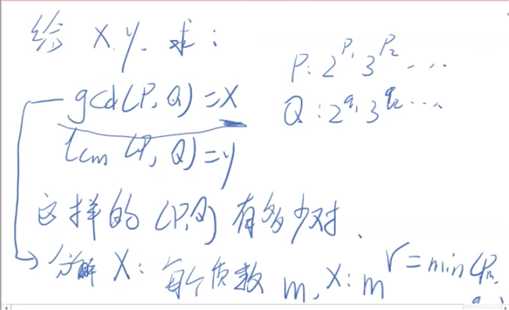 给 x, y. 求:
gcd(P, Q) = x
lcm(P, Q) = y
P: 2^p₁ 3^p₂ ...
Q: 2^q₁ 3^q₂ ...
这样的 (P, Q) 有多少对.
分解 X: 每个质数 m, X: m^r = min(Pₘ,